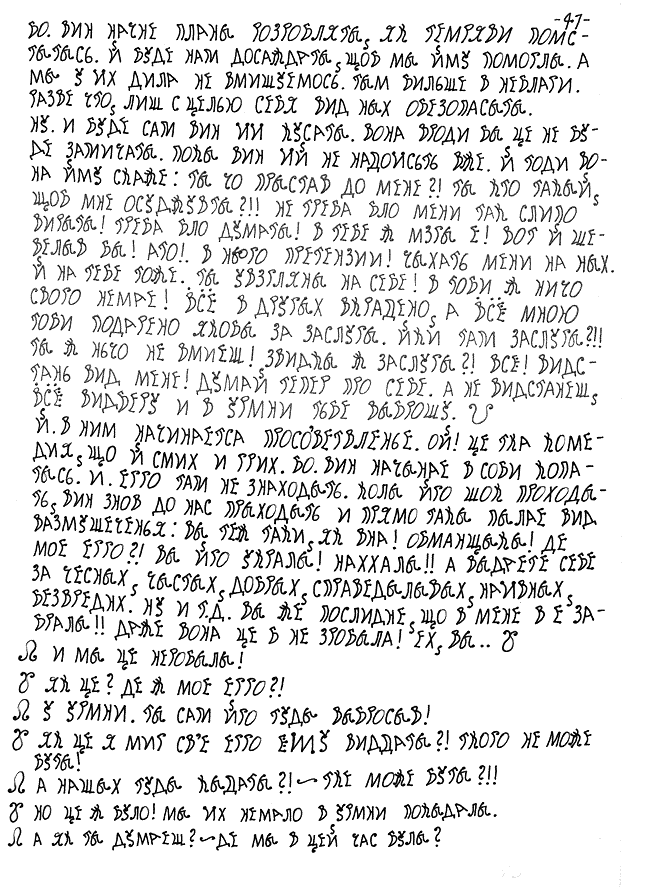 -47-
БО. ВИН НАЧНЕ ПЛАНЫ РОЗРОБЛЯТЫ, ЯК ТЕМРЯВИ ПОМС-
ТЫТЫСЬ. Й БУДЕ НАМ ДОСАЖДАТЫ, ЩОБ МЫ ЙМУ ПОМОГЛЫ. А
МЫ У ИХ ДИЛА НЕ ВМИШУЕМОСЬ. ТАМ БИЛЬШЕ В НЕВЛАГИ.
РАЗВЕ ЧТО, ЛИШ С ЦЕЛЬЮ СЕБЯ ВИД НЫХ ОБЕЗОПАСЫТЫ.
НУ. И БУДЕ САМ ВИН ИИ КУСАТЫ. ВОНА ВРОДИ БЫ ЦЕ НЕ БУ-
ДЕ ЗАМИЧАТЫ. ПОКЫ ВИН ИЙ НЕ НАДОИСЬТЬ ВЖЕ. Й ТОДИ ВО-
НА ЙМУ СКАЖЕ: ТЫ ЧО ПРЫСТАВ ДО МЕНЕ?! ТЫ КТО ТАКЫЙ,
ЩОБ МНЕ ОСУДЖУВТЫ?!! НЕ ТРЕБА БЛО МЕНИ ТАК СЛИПО
ВИРЫТЫ! ТРЕБА БЛО ДУМАТЫ! В ТЕБЕ Ж МЗГЫ Е! ВОТ Й ШЕ-
ВЕЛЫВ БЫ! АГО!. В НЬОГО ПРЕТЕНЗИИ! ЧЫХАТЬ МЕНИ НА НЫХ.
Й НА ТЕБЕ ТОЖЕ. ТЫ УВЗГЛЯНЫ НА СЕБЕ! В ТОБИ Ж НИЧО
СВОГО НЕМАЕ! ВСЁ В ДРУГЫХ ВКРАДЕНО, А ВСЁ МНОЮ
ТОБИ ПОДАРЕНО ЯКОБЫ ЗА ЗАСЛУГЫ. ЙКИ ТАМ ЗАСЛУГЫ?!!
ТЫ Ж НЬЧО НЕ ВМИЕШ! ЗВИДКЫ Ж ЗАСЛУГЫ?! ВСЕ! ВИДС-
ТАНЬ ВИД МЕНЕ! ДУМАЙ ТЕПЕР ПРО СЕБЕ. А НЕ ВИДСТАНЕШ,
ВСЁ ВИДБЕРУ И В УРМНИ ТЬБЕ ВЫБРОШУ.
Й. В НИМ НАЧИНАЕТСА ПРОСОВЕТВЛЕНЬЕ. ОЙ! ЦЕ ТКА КОМЕ-
ДИЯ, ЩО Й СМИХ И ГРИХ. БО. ВИН НАЧЫНАЕ В СОБИ КОПА-
ТЫСЬ. И. ЕГГО ТАМ НЕ ЗНАХОДЫТЬ. КОЛЫ ЙГО ШОК ПРОХОДЫ-
ТЬ, ВИН ЗНОВ ДО НАС ПРЫХОДЫТЬ И ПРЯМО ТАКЫ ПЫЛАЕ ВИД
ВАЗМУЩЕЧЕНЬЯ: ВЫ ТЕЖ ТАКИ, ЯК ВНА! ОБМАНЩЫКЫ! ДЕ
МОЕ ЕГГО?! ВЫ ЙГО УКРАЛЫ! НАХХАЛЫ!! А ВЫДАЕТЕ СЕБЕ
ЗА ЧЕСНЫХ, ЧЫСТЫХ, ДОБРЫХ, СПРАВЕДЫЛЫВЫХ, НАИВНЫХ,
БЕЗВРЕДНХ. НУ И Т.Д. ВЫ ЖЕ ПОСЛИДНЕ, ЩО В МЕНЕ В Е ЗА-
БРАЛЫ!! ДАЖЕ ВОНА ЦЕ Б НЕ ЗРОБЫЛА! ЕХ, ВЫ..
И МЫ ЦЕ НЕРОБЫЛЫ!
ЯК ЦЕ? ДЕ Ж МОЕ ЕГГО?!
У УРМНИ. ТЫ САМ ЙГО ТУДЫ ВЫБРОСЫВ!
ЯК ЦЕ Я МИГ СВ'Е ЕГГО ЕМУ ВИДДАТЫ?! ТКОГО НЕ МОЖЕ
БУТЫ!
А НАШЫХ ТУДЫ КЫДАТЫ?! ~ ТКЕ МОЖЕ БУТЫ?!!
НО ЦЕ Ж БУЛО! МЫ ИХ НЕМАЛО В УРМНИ ПОКЫДАЛЫ.
А ЯК ТЫ ДУМАЕШ? ~ ДЕ МЫ В ЦЕЙ ЧАС БУЛЫ?